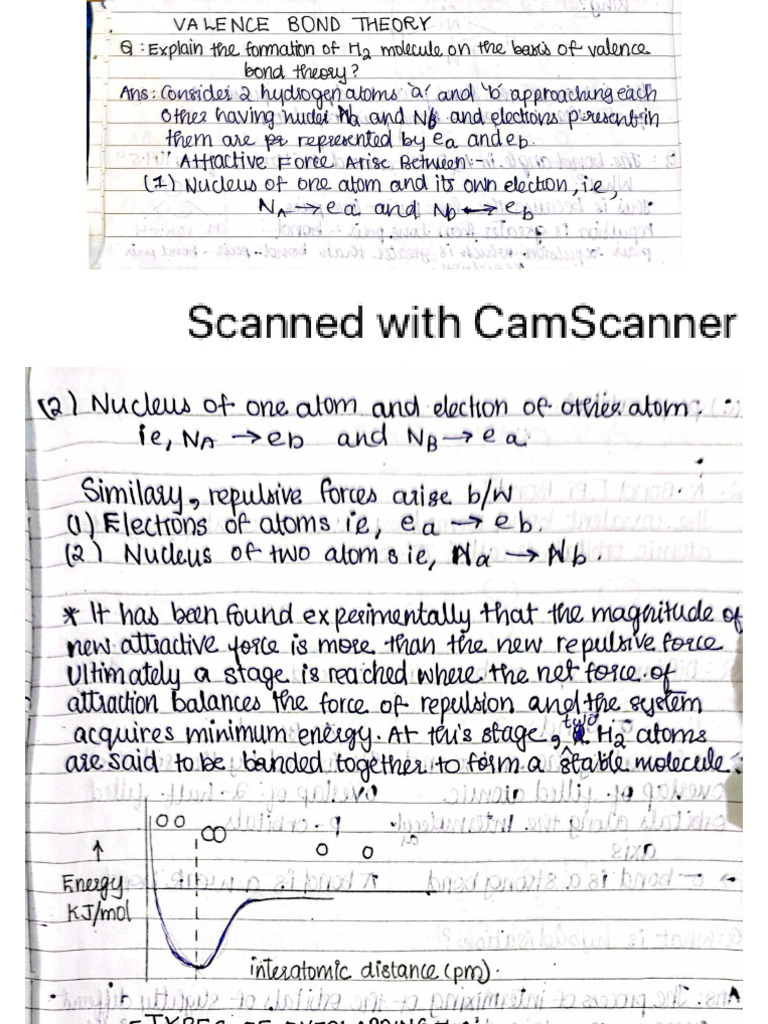 VALENCE BOND THEORY
Q: Explain the formation of H2 molecule on the basis of valence
bond theory?
Ans: Consider 2 hydrogen atoms 'a' and 'b' approaching each
other having nuclei Na and Nb and electrons present in
them are represented by ea and eb
Attractive Force Arise Between:-
(1) Nucleus of one atom and its own electron, i.e,
NA → ea and Nb ↔ eb
Scanned with CamScanner
(2) Nucleus of one atom and electron of other atom.
ie, NA → eb and NB → ea
Similary, repulsive forces arise b/w
(1) Electrons of atoms ie, ea → eb.
(2) Nucleus of two atoms ie, Na → Nb.
* It has been found experimentally that the magnitude of
new attractive force is more than the new repulsive force
Ultimately a stage is reached where the net force of
attraction balances the force of repulsion and the system
acquires minimum energy. At this stage, two H2 atoms
are said to be bonded together to form a stable molecule.
↑
Energy
KJ/mol
interatomic distance (pm).